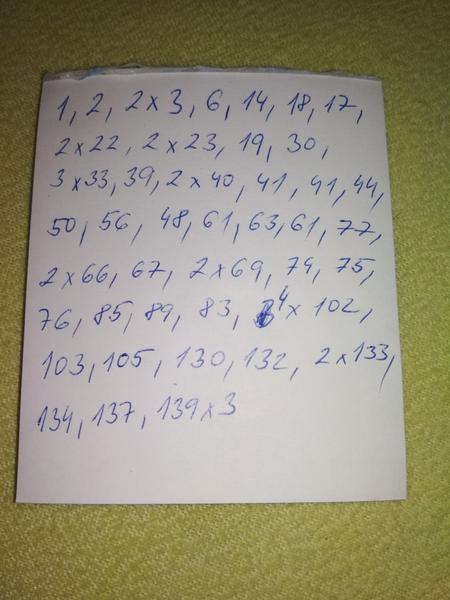 1, 2, 2x3, 6, 14, 18, 17,
2x22, 2x23, 19, 30,
3x33, 39, 2x40, 41, 41, 44,
50, 56, 48, 61, 63, 61, 77,
2x66, 67, 2x69, 74, 75,
76, 85, 89, 83, 4x102,
103, 105, 130, 132, 2x133,
134, 137, 139x3